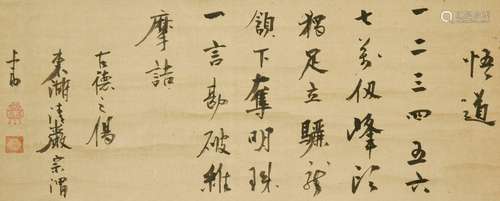 悟道
一二三四五六
七萬仭峰頭
獨足立驪龍
頷下奪明珠
一言勘破維
摩詰
古德之偈
東海清巖宗渭